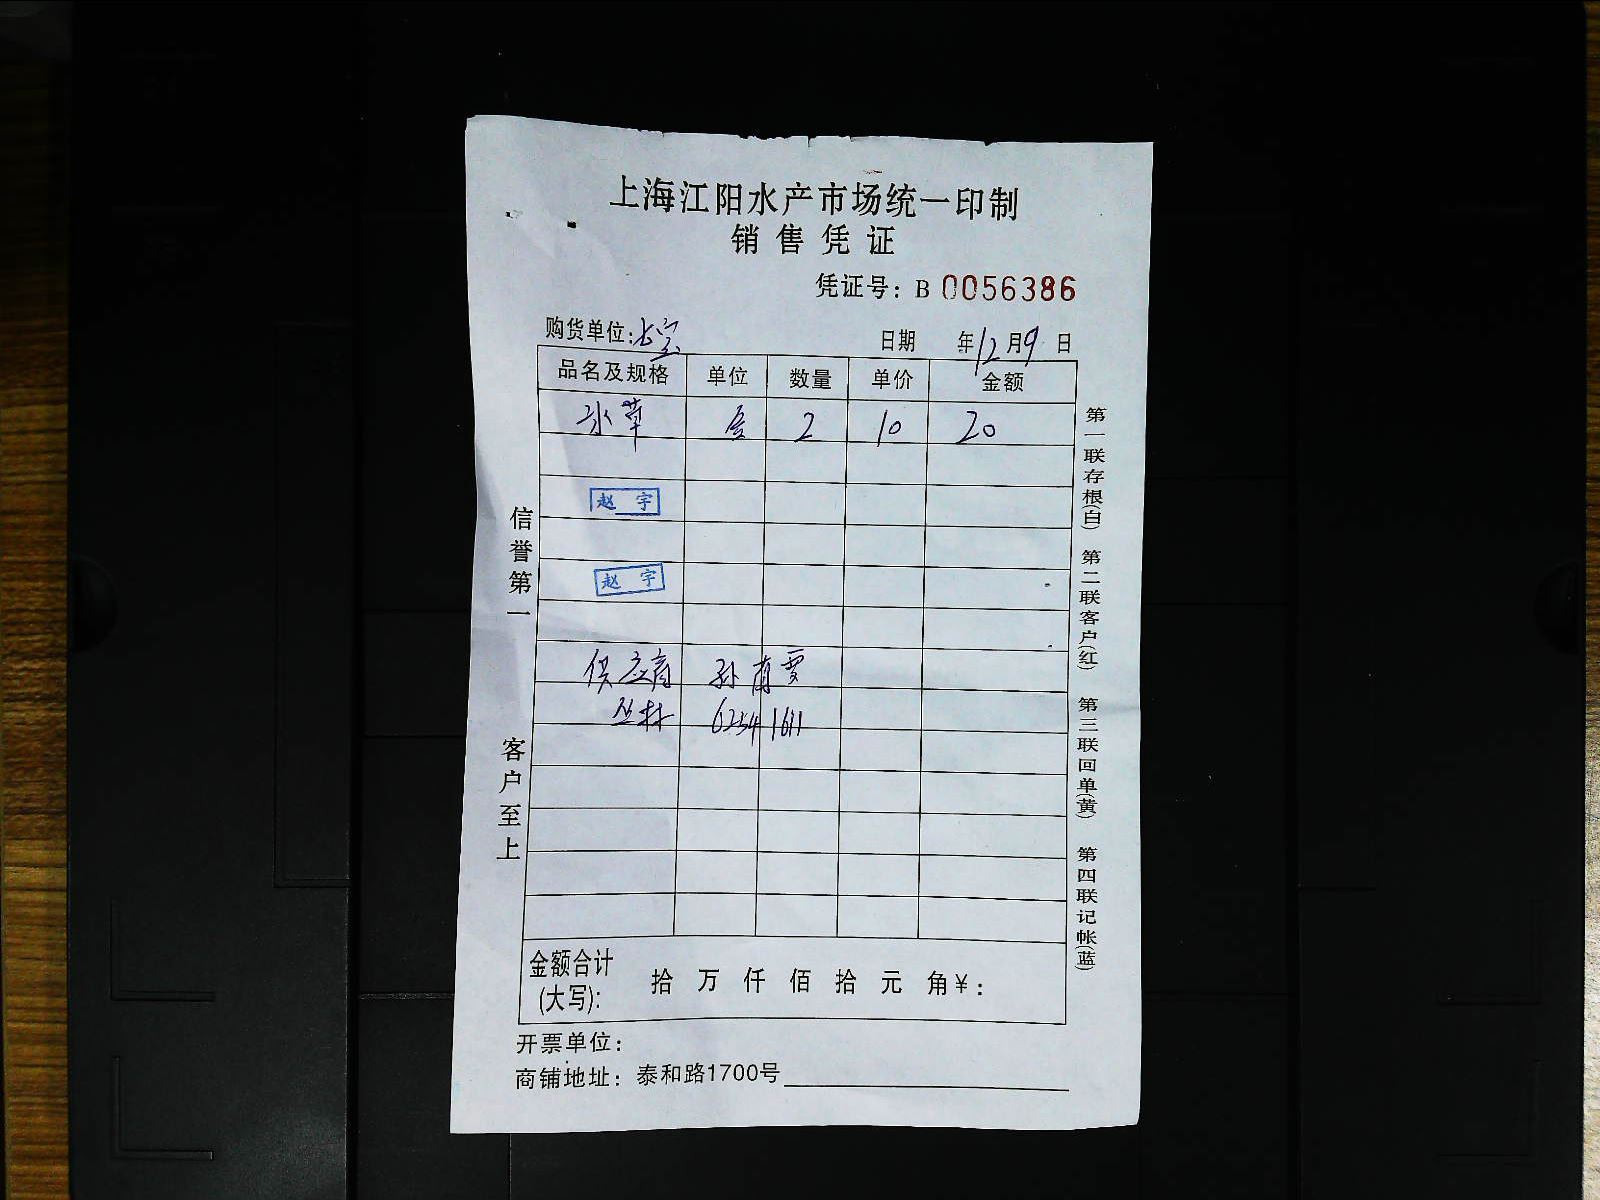 上海江阳水产市场统一印制
销售凭证
凭证号：B 0056386
购货单位: 日期 年12月9日
品名及规格 单位 数量 单价 金额
水草 2 10 20
赵宇
赵宇
供应商 孙
丛林 62541611
金额合计 拾万仟佰拾元角￥：
(大写):
开票单位：
商铺地址：泰和路1700号
信誉第一
客户至上
第一联存根(白) 第二联客户(红) 第三联回单(黄) 第四联记帐(蓝)